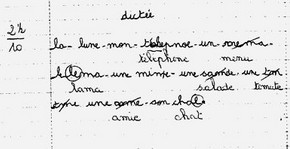 dictée
2½
10
la - lune - mon - telepnoe - un - nenu
téléphone menu
le lema - une mixie - une samde - ue ton
lama salade tomate
tme une ame - son chal
amie chat